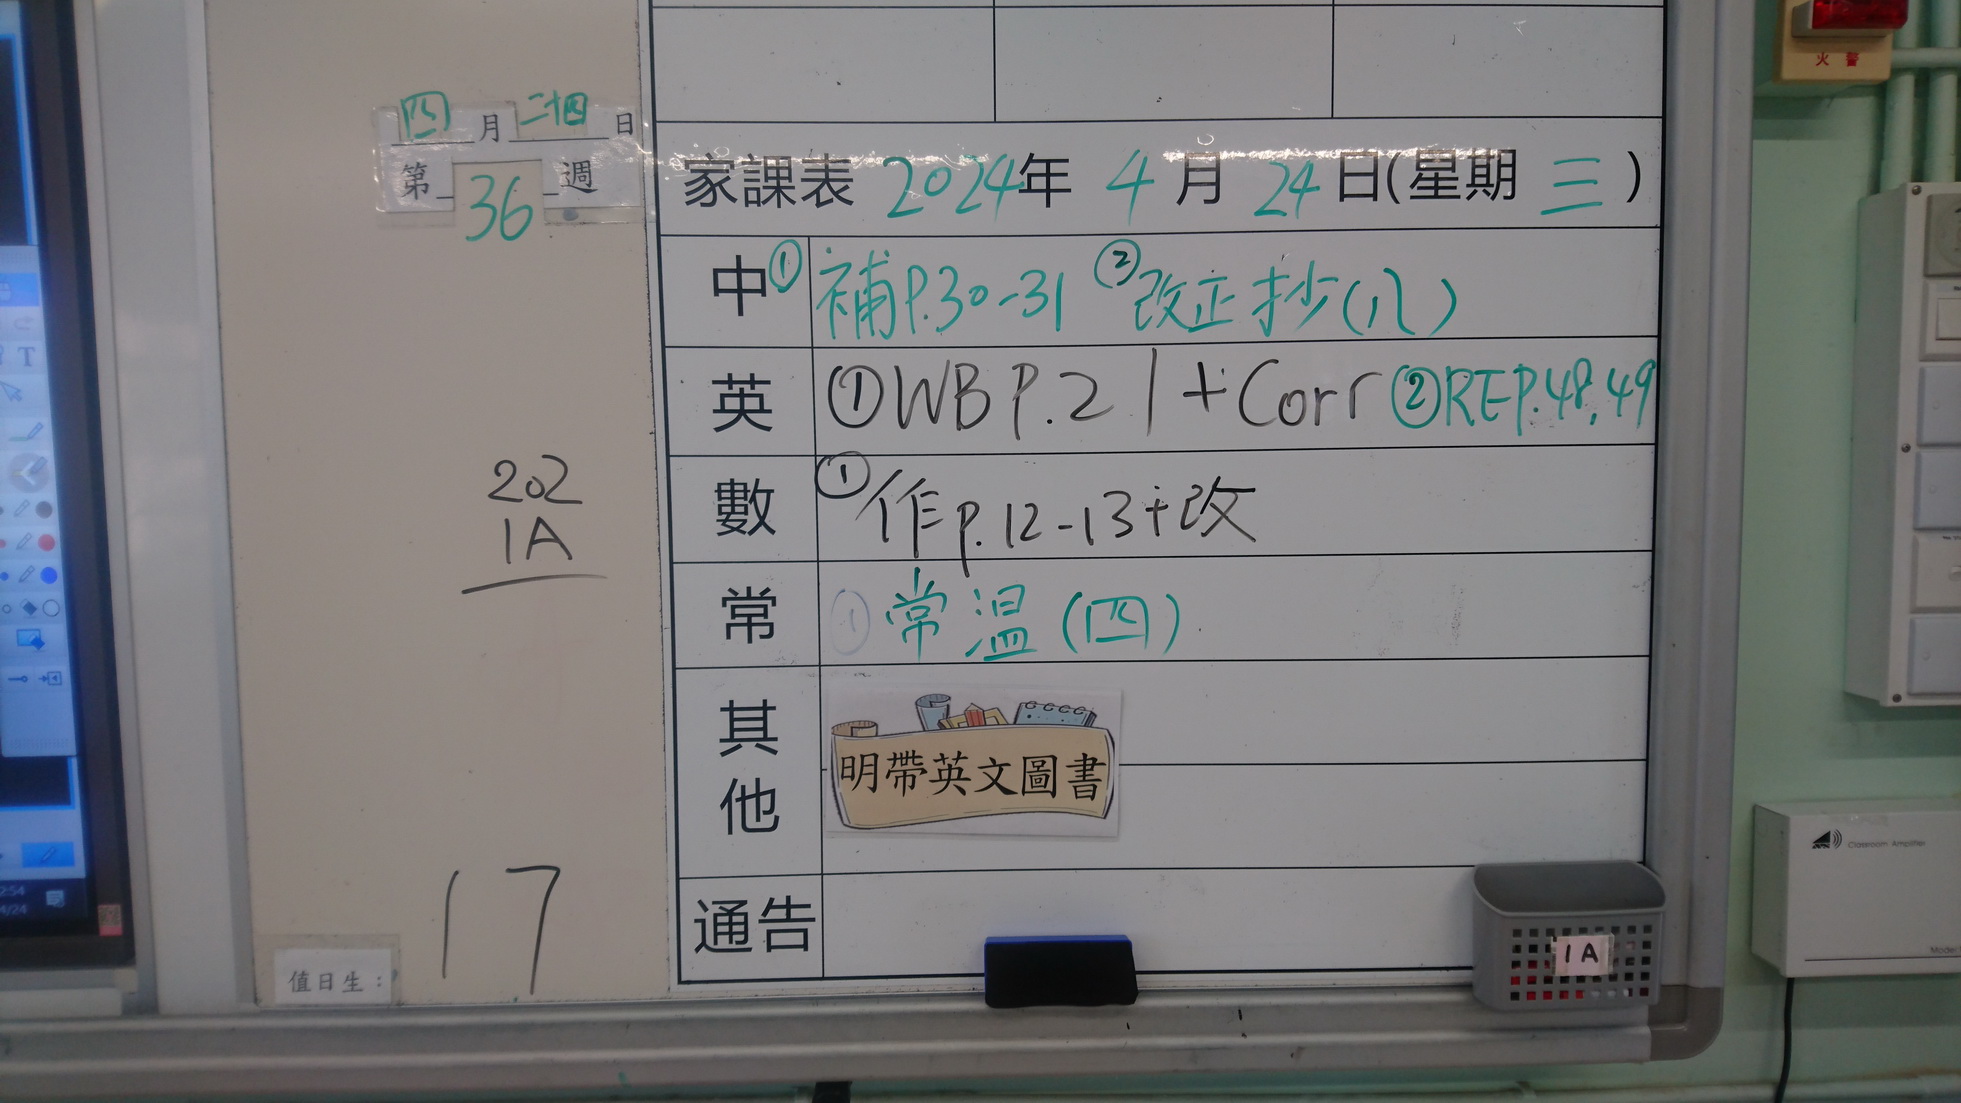 四月二十四日
第36週
202
1A
17
值日生：
家課表 2024年 4月 24日(星期三)
中 ①補P.30-31 ②改正抄(八)
英 ①WB P.21+Corr ②REP.48,49
數 ①作p.12-13+改
常 ①常溫(四)
其他 明帶英文圖書
通告
1A
火警
Classroom Amplifier